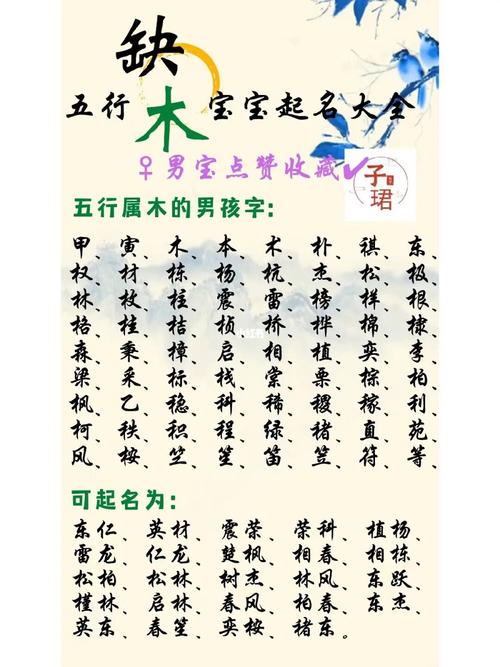 缺
五行木宝宝起名大全
♀男宝点赞收藏✓
子珺
五行属木的男孩字：
甲、寅、木、本、术、朴、祺、东、
权、材、栋、杨、杭、杰、松、极、
林、枚、柱、震、雷、榜、样、根、
格、桂、桔、桢、桥、桦、棉、棣、
森、秉、樟、启、相、植、奕、李、
梁、采、标、栈、棠、栗、棕、柏、
枫、乙、稳、科、稀、稷、稼、利、
柯、秩、积、程、绿、楮、直、苑、
风、桉、竺、笙、笛、笠、符、等、
可起名为：
东仁、英材、震荣、荣科、植杨、
雷龙、仁龙、楚枫、相春、相栋、
松柏、松林、树杰、林风、东跃、
槿林、启林、春风、柏春、东杰、
英东、春笙、奕桉、楮东。